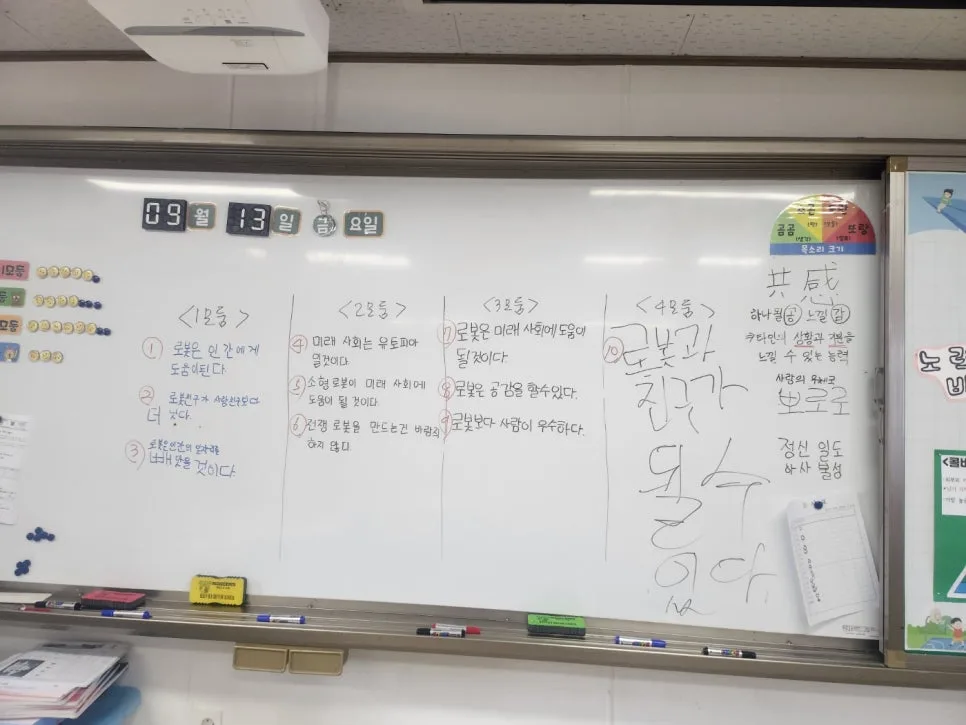 09 월 13 일 금 요일
모둠
<1모둠>
① 로봇은 인간에게
도움이된다
② 로봇친구가 사람친구보다
더 낫다.
③ 로봇은인간의 일자리를
빼앗을 것이다
<2모둠>
④ 미래 사회는 유토피아
일것이다.
⑤ 소형로봇이 미래 사회에
도움이 될 것이다.
⑥ 전쟁 로봇을 만드는건 바람직
하지 않다.
<3모둠>
⑦ 로봇은 미래 사회에 도움이
될것이다.
⑧ 로봇은 공감을 할수있다.
⑨ 로봇보다 사람이 우수하다.
<4모둠>
⑩ 로봇과
친구가
될 수
있다
곰곰
또랑
목소리 크기
共 感
하나될 공 느낄 감
타인의 상황과 기분을
느낄 수 있는 능력
사람의 우체국
뽀로로
정신 일도
하사 불성
노